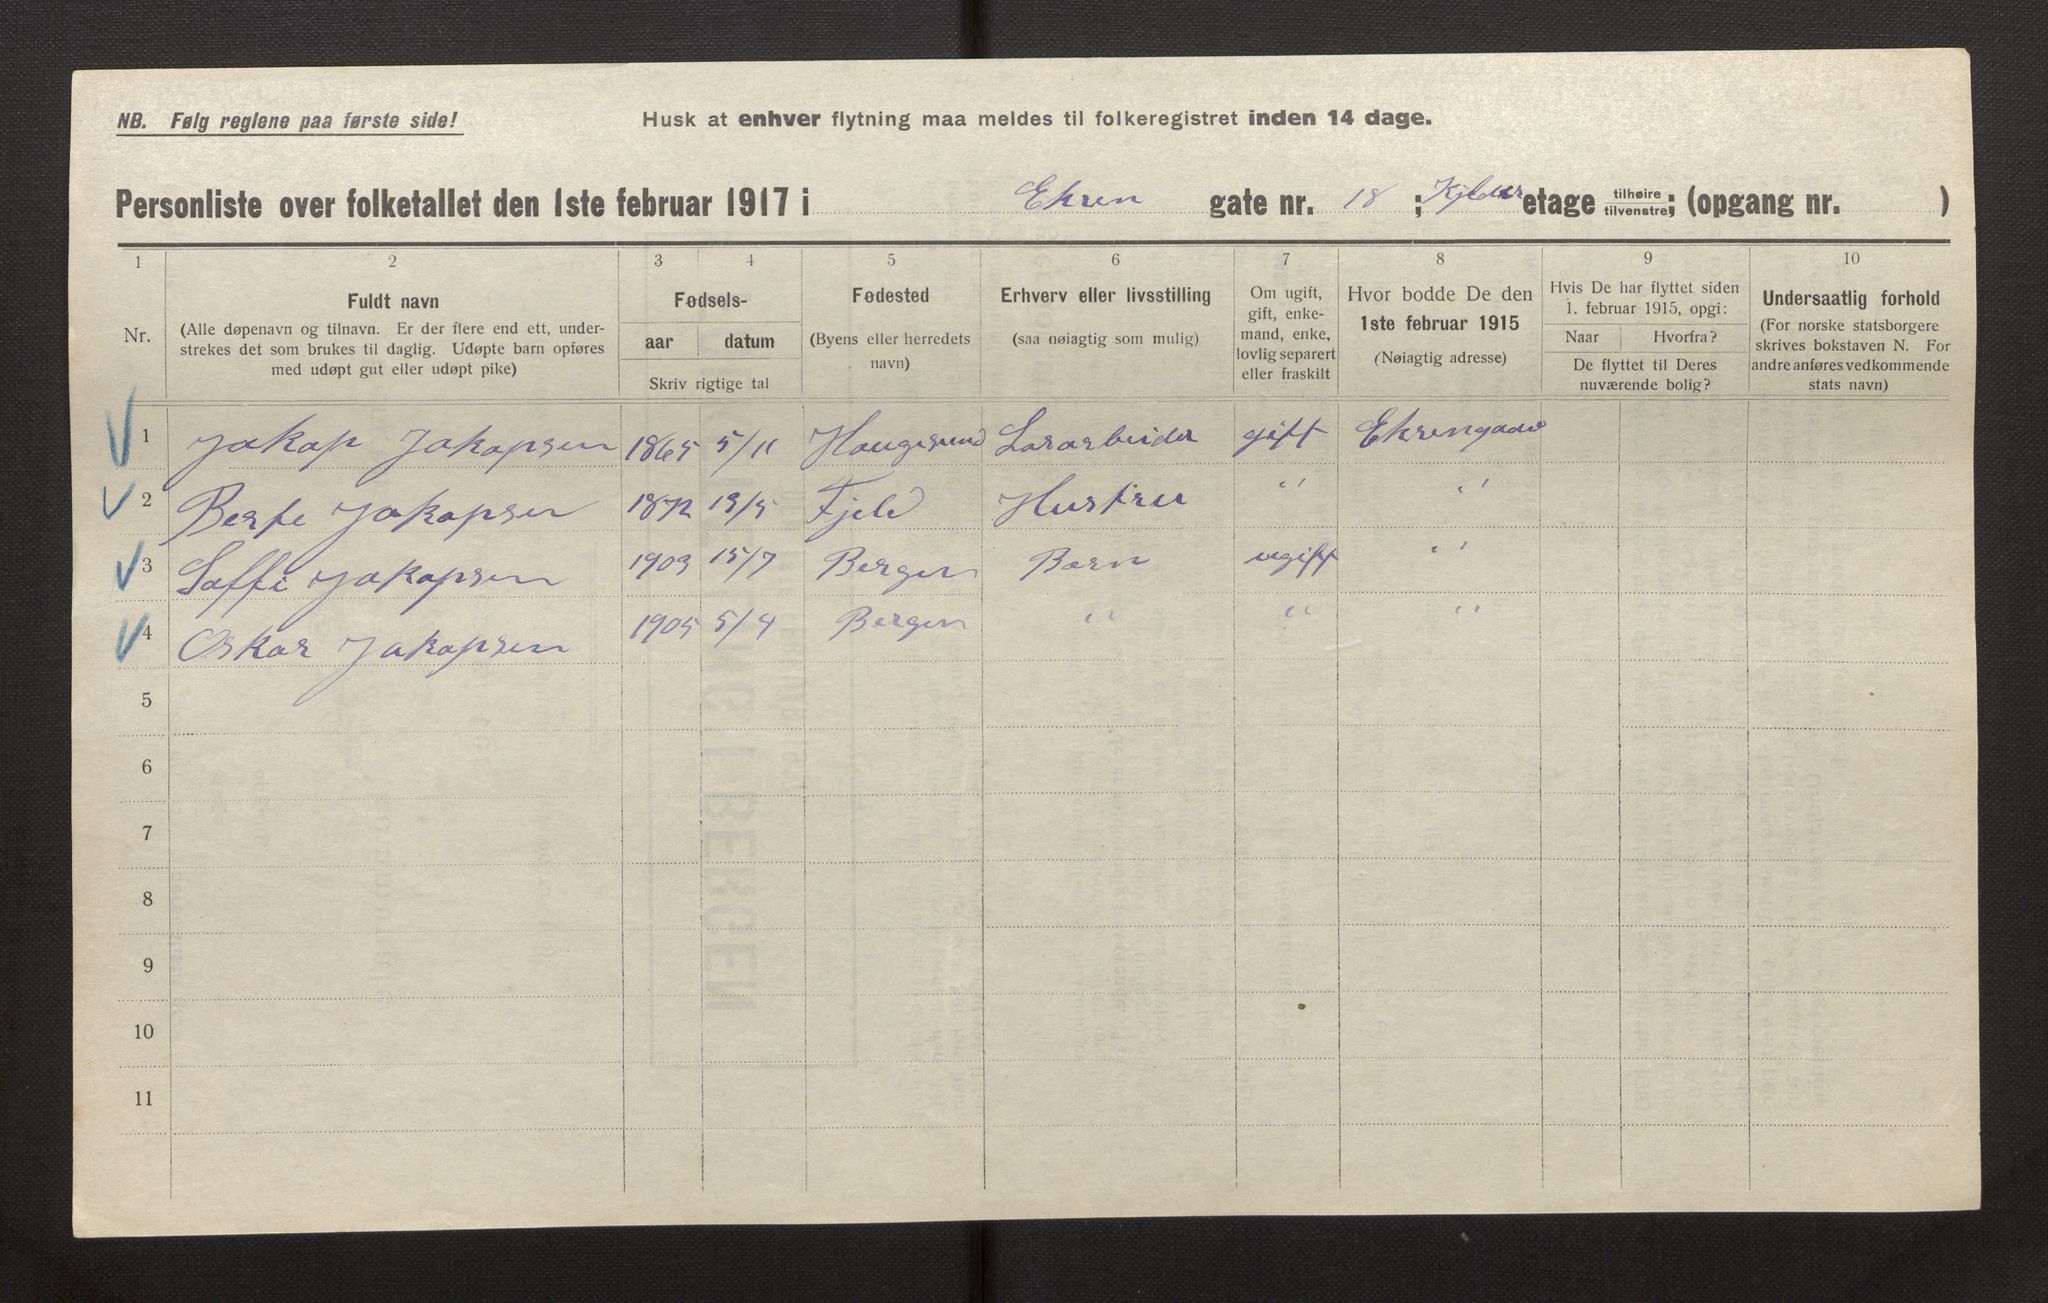 NB. Følg reglene paa første side!
Husk at enhver flytning maa meldes til folkeregistret inden 14 dage.
Personliste over folketallet den 1ste februar 1917 i Ekren gate nr. 18 ; Kjelder etage tilhøire tilvenstre ; (opgang nr. )
1 2 3 4 5 6 7 8 9 10
Nr.
Fuldt navn
(Alle døpenavn og tilnavn. Er der flere end ett, under-
strekes det som brukes til daglig. Udøpte barn opføres
med udøpt gut eller udøpt pike)
Fødsels-
aar datum
Skriv rigtige tal
Fødested
(Byens eller herredets
navn)
Erhverv eller livsstilling
(saa nøiagtig som mulig)
Om ugift,
gift, enke-
mand, enke,
lovlig separert
eller fraskilt
Hvor bodde De den
1ste februar 1915
(Nøiagtig adresse)
Hvis De har flyttet siden
1. februar 1915, opgi:
Naar Hvorfra?
De flyttet til Deres
nuværende bolig?
Undersaatlig forhold
(For norske statsborgere
skrives bokstaven N. For
andre anføres vedkommende
stats navn)
1 Jakop Jakopsen 1865 5/11 Haugesund Løsarbeider gift Ekrengade
2 Berte Jakopsen 1872 13/5 Fjeld Hustru " "
3 Soffi Jakopsen 1903 15/7 Bergen Barn ugift "
4 Oskar Jakopsen 1905 5/4 Bergen " " "
5
6
7
8
9
10
11